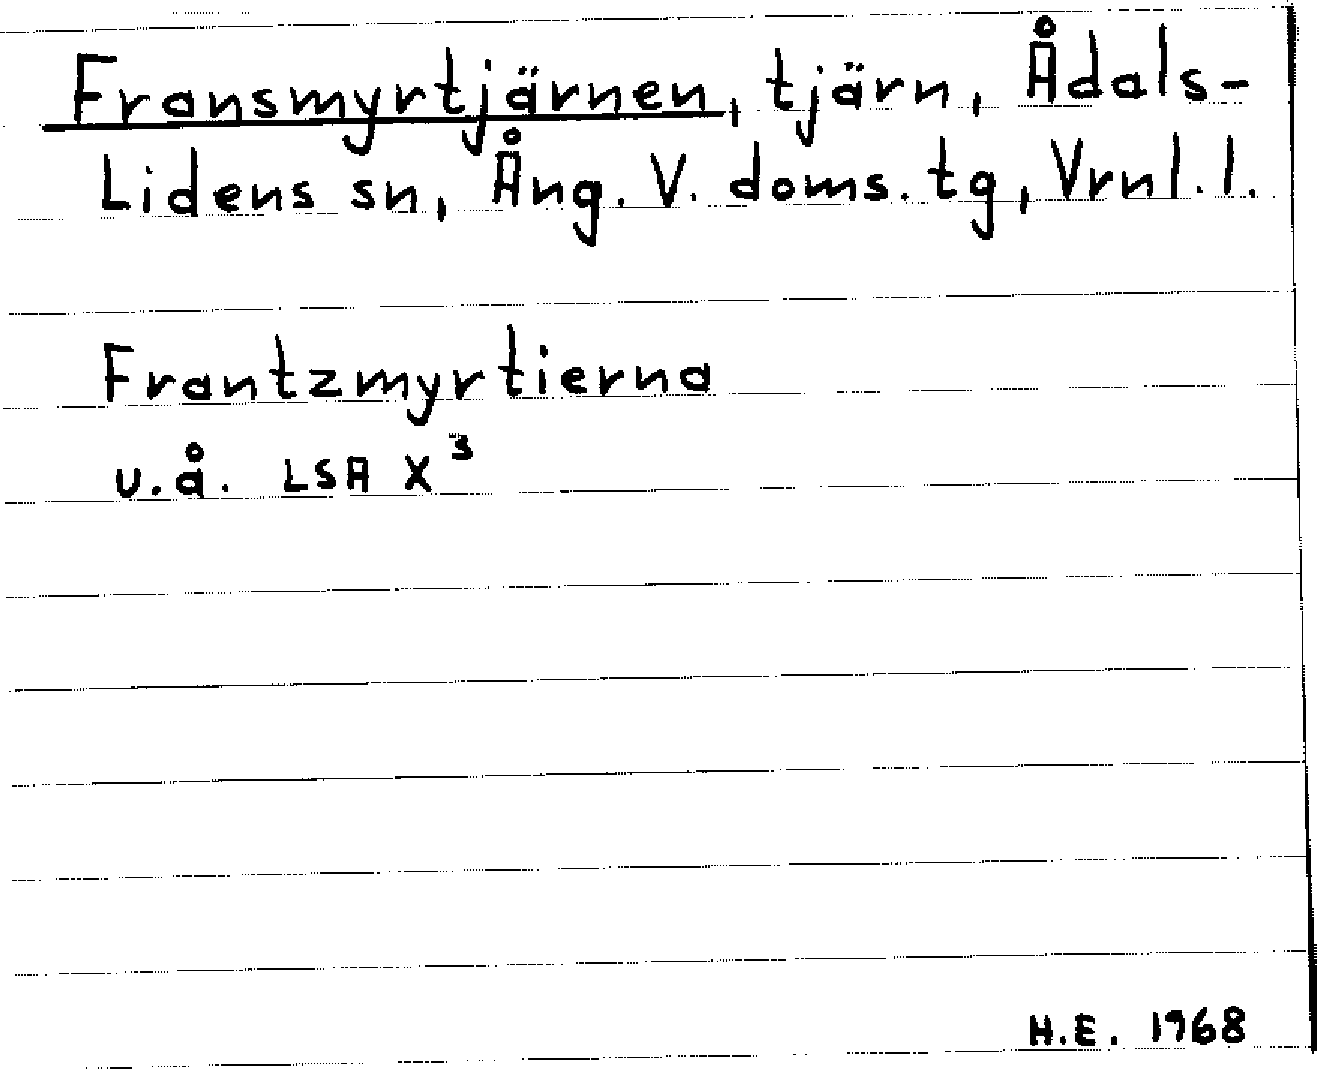 Fransmyrtjärnen, tjärn, Ådals-
Lidens sn, Ång. V. doms. tg, Vrnl. l.
Frantzmyrtierna
u.å. LSA X³
H.E. 1968